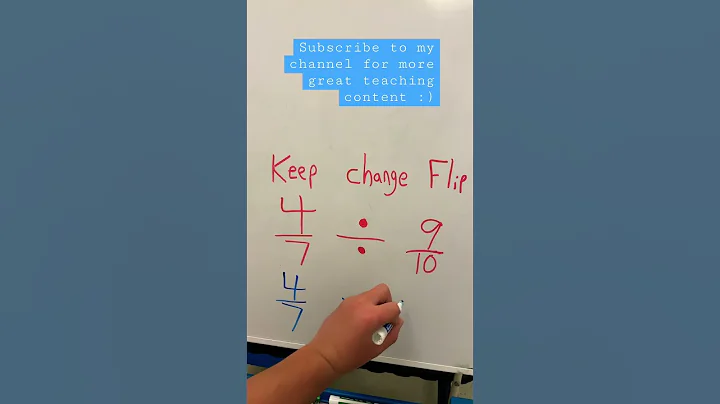 Subscribe to my
channel for more
great teaching
content :)
Keep change Flip
4/7 ÷ 9/10
4/7